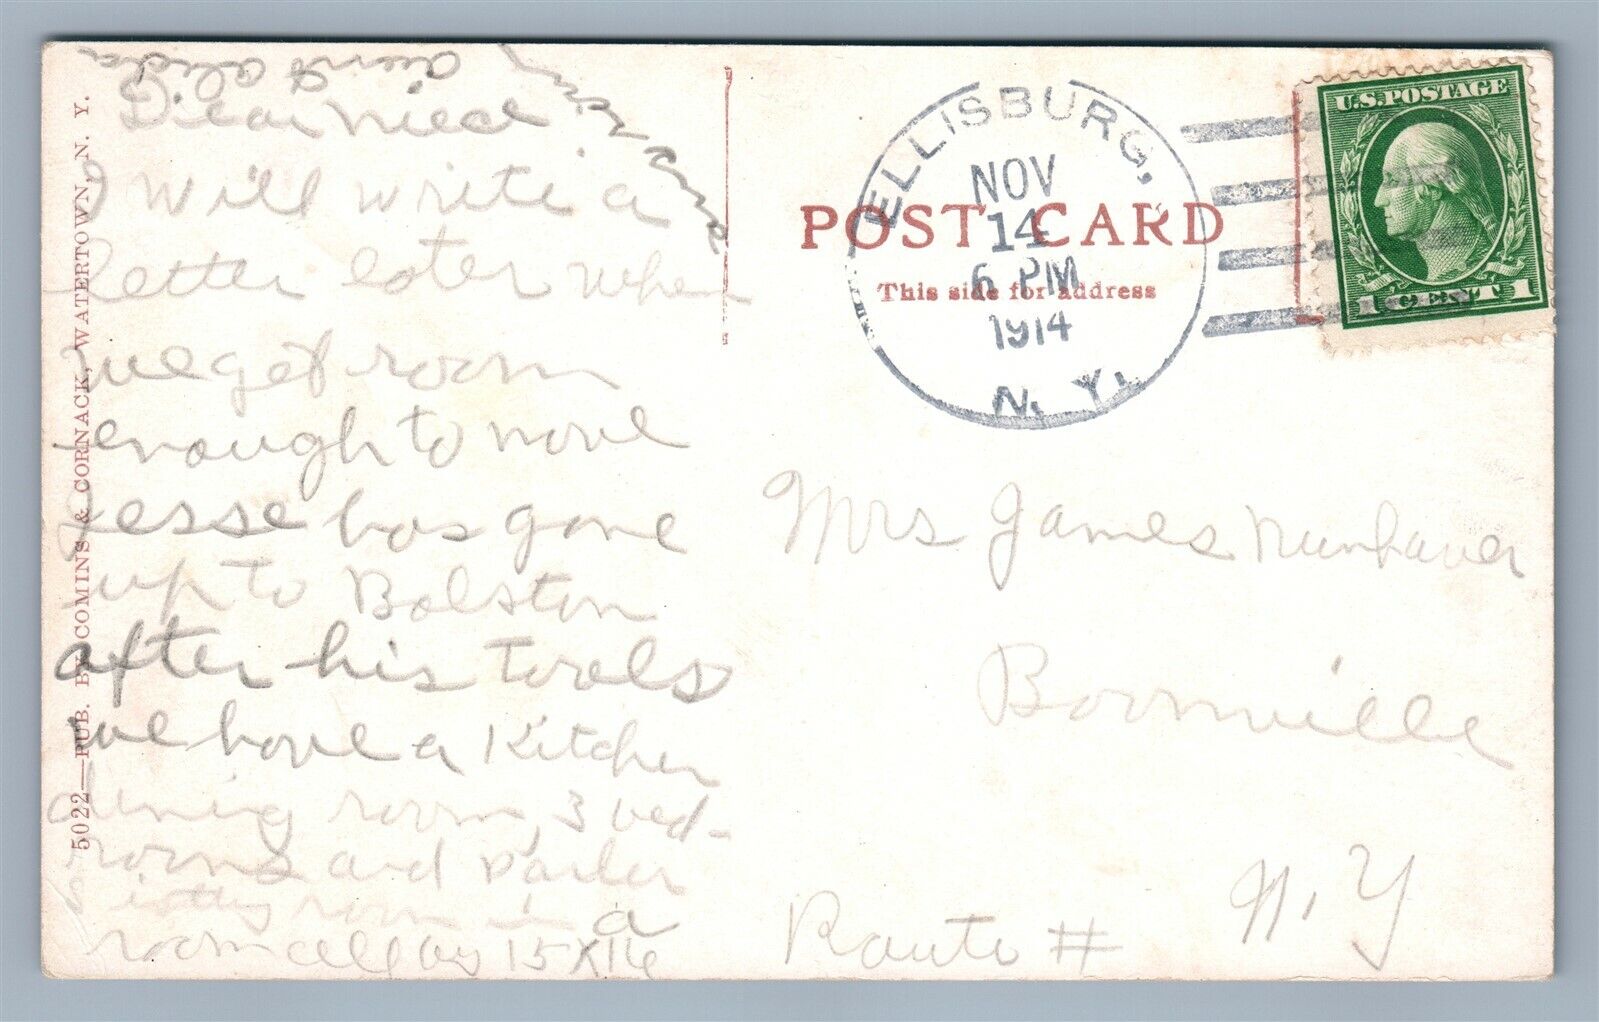 Dear Niece
I will write a
letter later when
we get room
enough to move
Jesse has gone
up to Bolston
after his tools
we have a Kitchen
dining room, 3 bed-
rooms and parler
sitting room is a
room 15 X 16
answer soon
aunt alida
5022—PUB. BY COMINS & CORNACK, WATERTOWN, N. Y.
POST CARD
This side for address
ELLISBURG,
NOV
14
6 PM
1914
N. Y.
U.S. POSTAGE
1 CENT 1
Mrs James
Boonville
N. Y
Route #